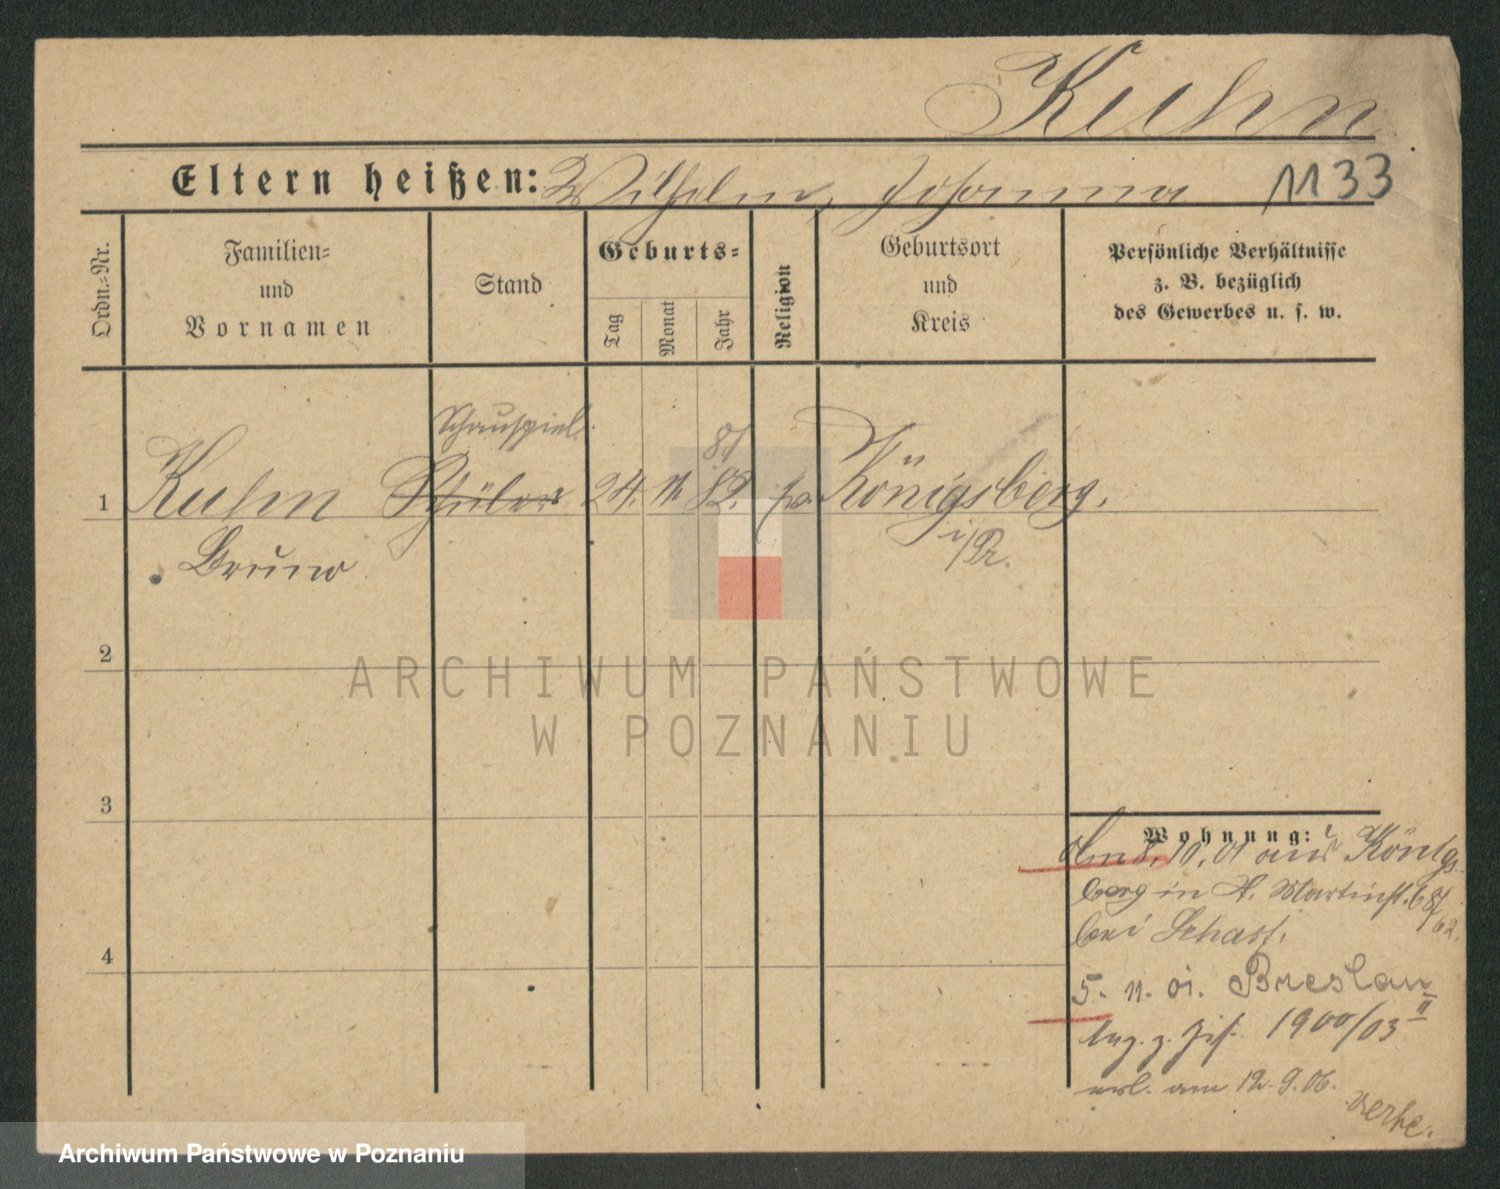 Kuhn
Eltern heißen: Wilhelm, Johanna 1133
Ordn.-Nr.
Familien-
und
Vornamen
Stand
Geburts-
Tag
Monat
Jahr
Religion
Geburtsort
und
Kreis
Persönliche Verhältnisse
z. B. bezüglich
des Gewerbes u. s. w.
Schauspiel.
81
1 Kuhn Schüler 24. 11. 82. Königsberg.
i/Pr.
Bruno
2
ARCHIWUM PAŃSTWOWE
W POZNANIU
3
Wohnung:
8. 10. 01 aus Königs-
berg in St. Martinst. 68/
62.
bei Schaff.
4
5. 11. 01. Breslau
1900/03 II
am 12. 9. 06.
Archiwum Państwowe w Poznaniu